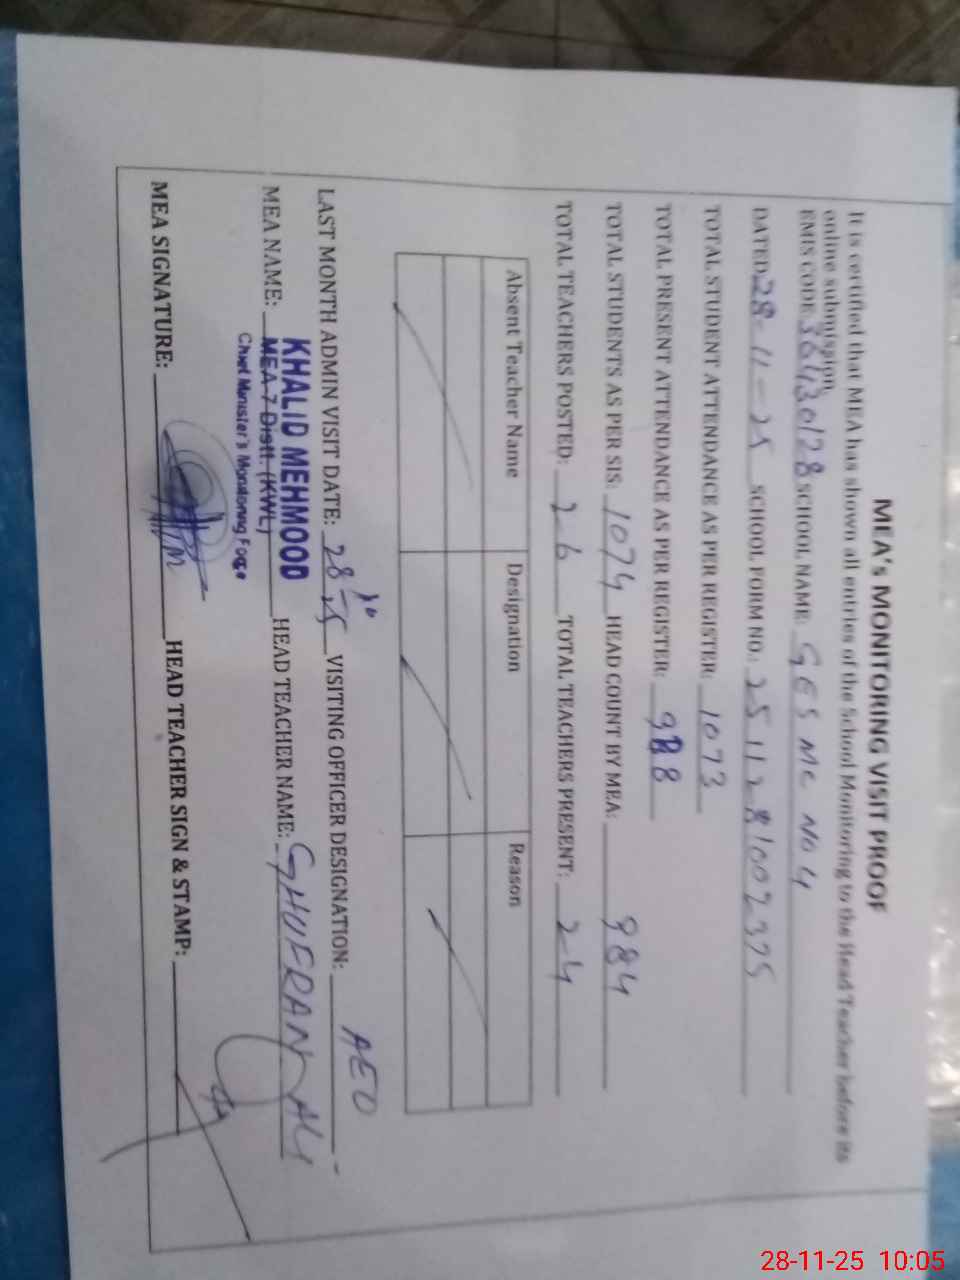 MEA's MONITORING VISIT PROOF
It is certified that MEA has shown all entries of the School Monitoring to the Head Teacher before its
online submission.
EMIS CODE 36430128 SCHOOL NAME: GES MC No 4
DATED 28-11-25 SCHOOL FORM NO.: 2511281002375
TOTAL STUDENT ATTENDANCE AS PER REGISTER: 1073
TOTAL PRESENT ATTENDANCE AS PER REGISTER: 988
TOTAL STUDENTS AS PER SIS: 1074 HEAD COUNT BY MEA: 984
TOTAL TEACHERS POSTED: 26 TOTAL TEACHERS PRESENT: 24
Absent Teacher Name Designation Reason
LAST MONTH ADMIN VISIT DATE: 28-10-25 VISITING OFFICER DESIGNATION: AEO
MEA NAME: KHALID MEHMOOD HEAD TEACHER NAME: GHUFRAN ALI
MEA-7 Distt. (KWL)
Chief Minister's Monitoring Force
MEA SIGNATURE: HEAD TEACHER SIGN & STAMP:
28-11-25 10:05